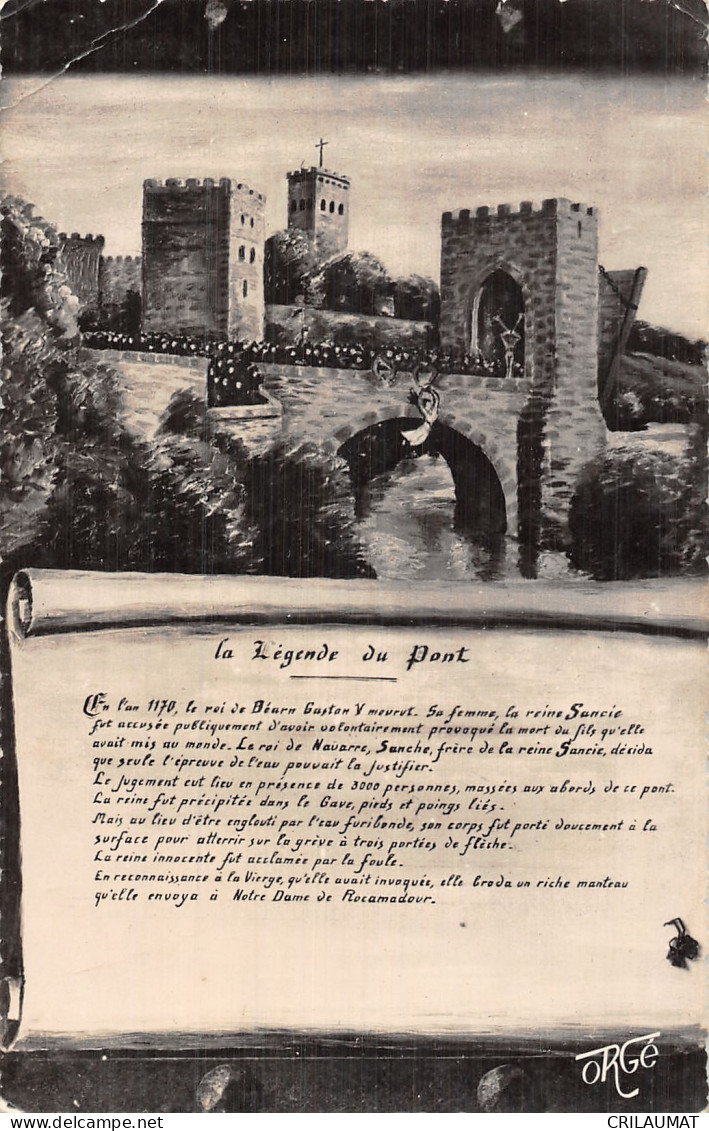 la Légende du Pont
En l'an 1170, le roi de Béarn Gaston V mourut. Sa femme, la reine Sancie
fut accusée publiquement d'avoir volontairement provoqué la mort du fils qu'elle
avait mis au monde. Le roi de Navarre, Sanche, frère de la reine Sancie, décida
que seule l'épreuve de l'eau pouvait la justifier.
Le jugement eut lieu en présence de 3000 personnes, massées aux abords de ce pont.
La reine fut précipitée dans le Gave, pieds et poings liés.
Mais au lieu d'être englouti par l'eau furibonde, son corps fut porté doucement à la
surface pour atterrir sur la grève à trois portées de flèche.
La reine innocente fut acclamée par la foule.
En reconnaissance à la Vierge, qu'elle avait invoquée, elle broda un riche manteau
qu'elle envoya à Notre Dame de Rocamadour.
ORGé
CRILAUMAT